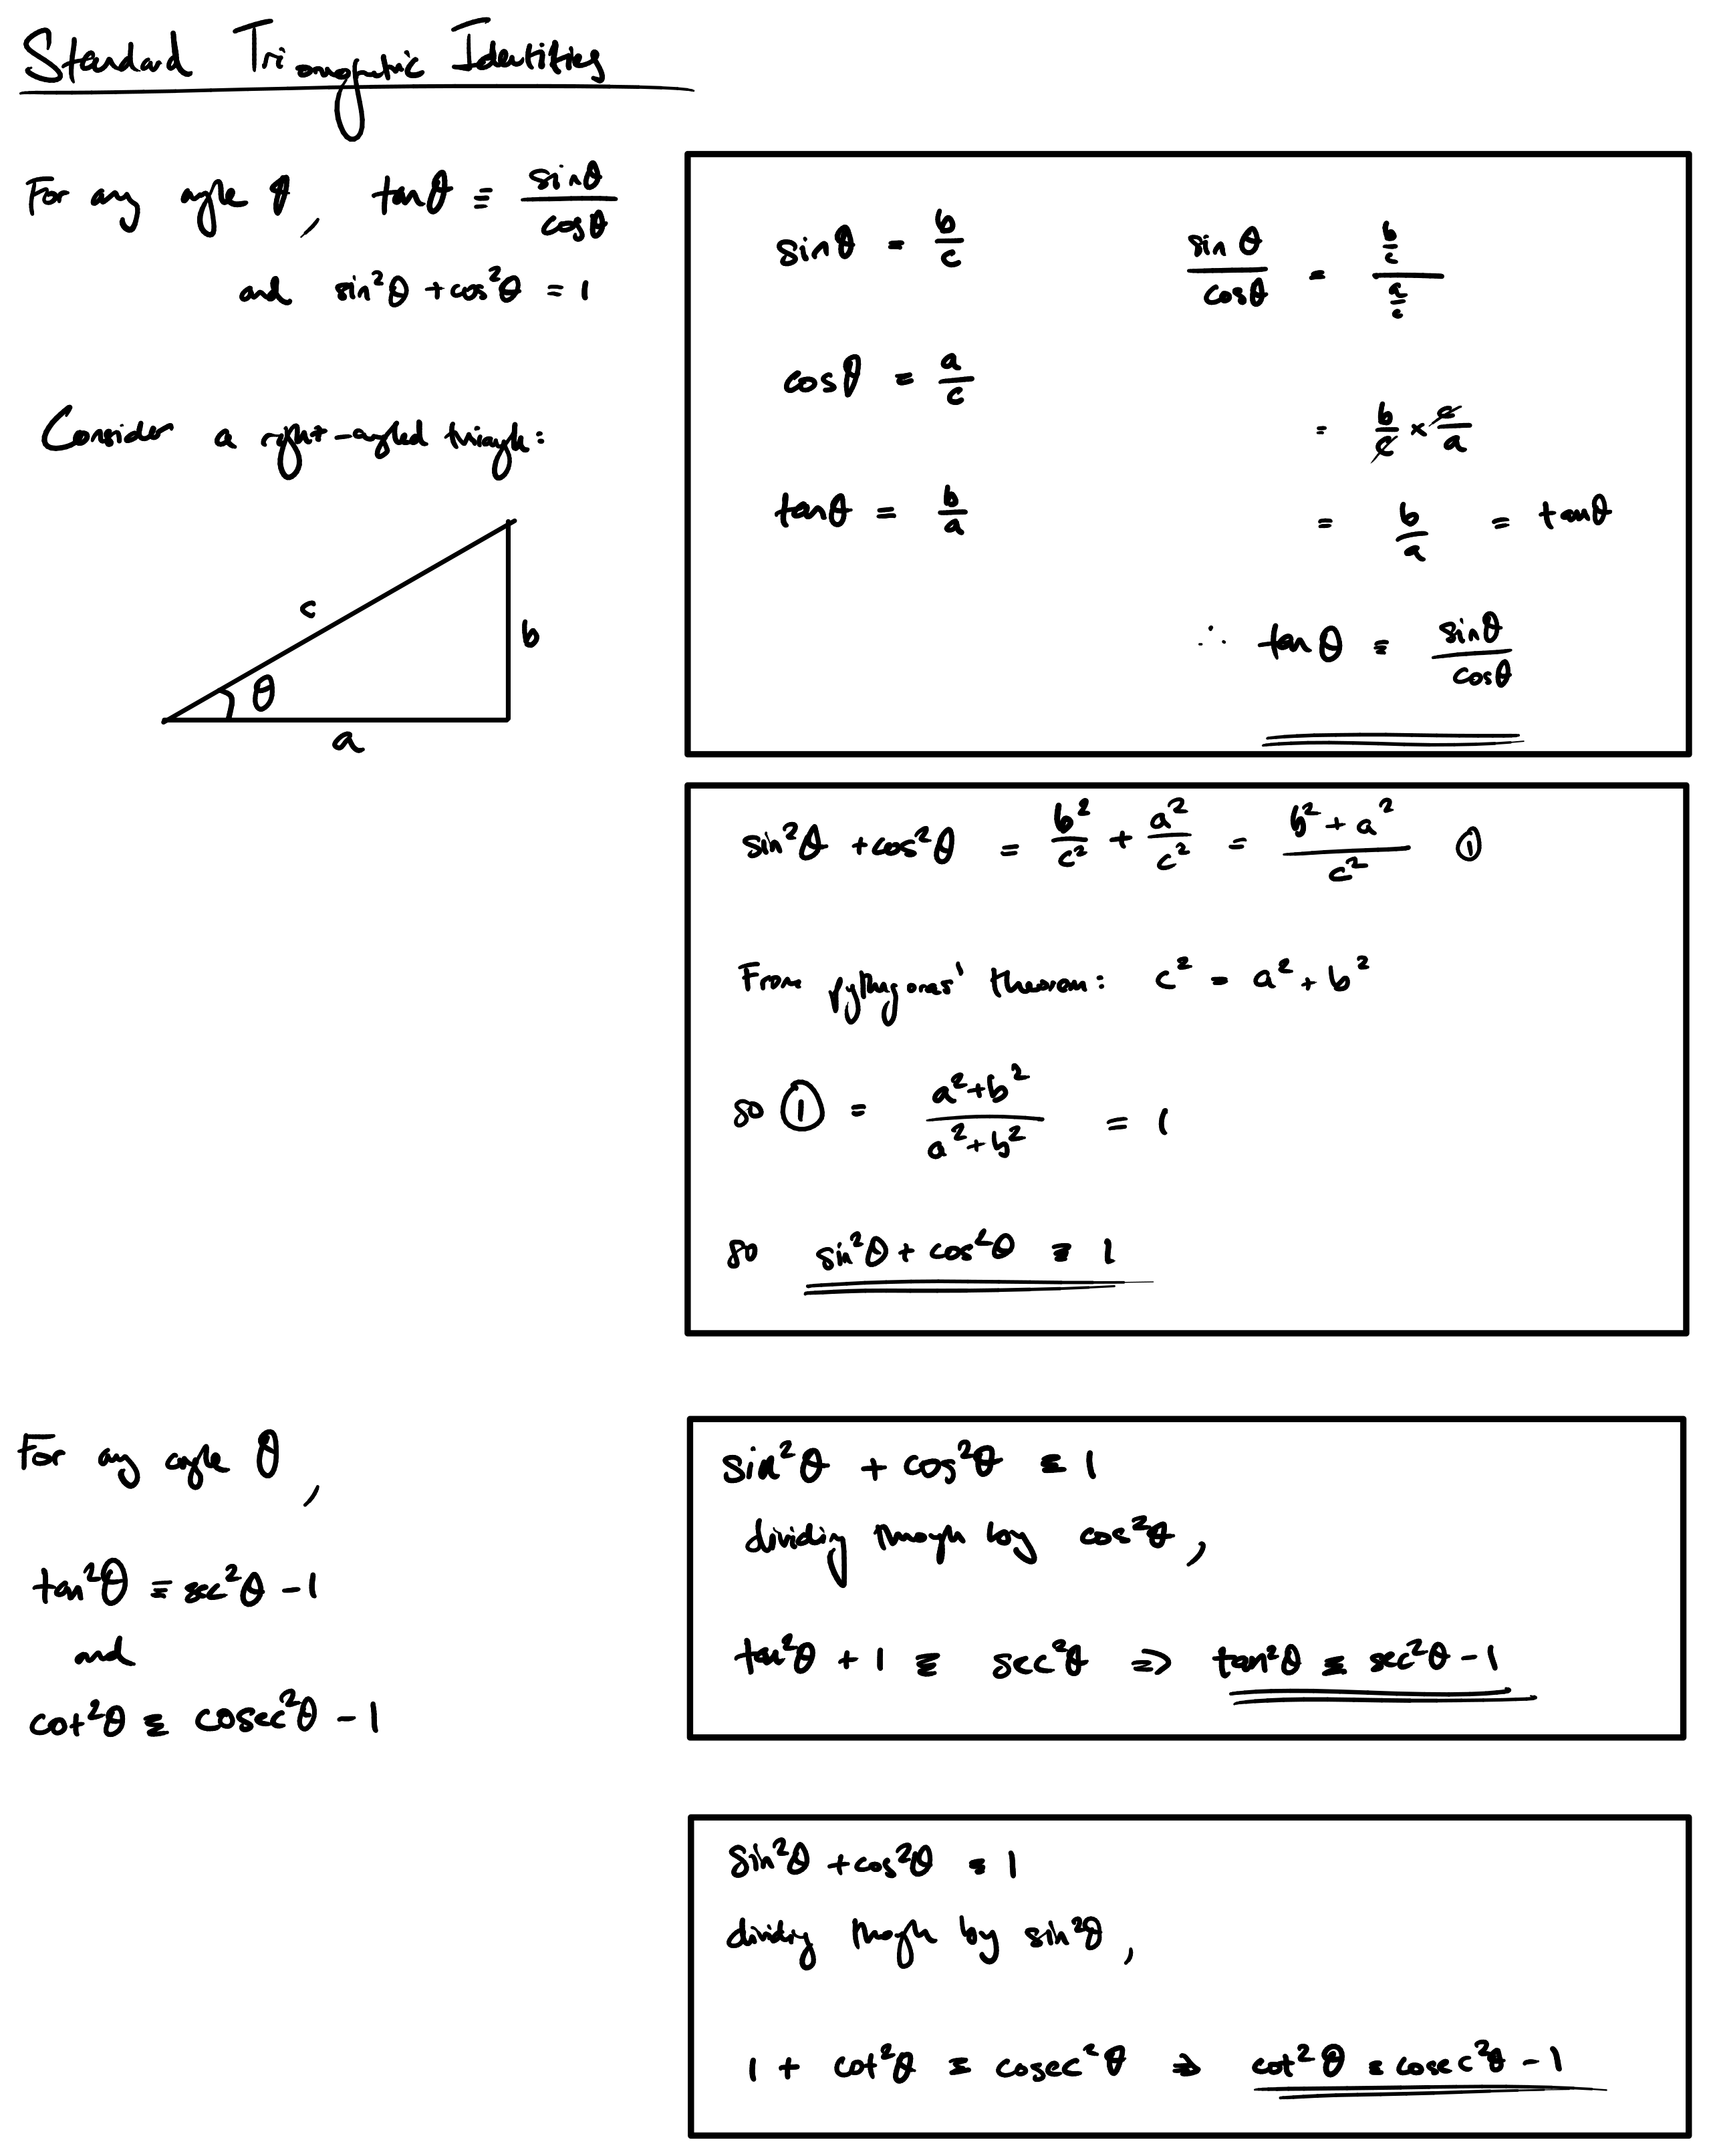 Standard Trionometric Identities
For any angle θ, tanθ ≡ sinθ/cosθ
and sin²θ + cos²θ = 1
Consider a right-angled triangle:
c
b
θ
a
sinθ = b/c
cosθ = a/c
tanθ = b/a
sinθ/cosθ = (b/c)/(a/c)
= b/c × c/a
= b/a = tanθ
∴ tanθ ≡ sinθ/cosθ
sin²θ + cos²θ = b²/c² + a²/c² = (b² + a²)/c² ①
From pythagoras' theorem: c² = a² + b²
so ① = (a² + b²)/(a² + b²) = 1
so sin²θ + cos²θ ≡ 1
For any angle θ,
tan²θ ≡ sec²θ - 1
and
cot²θ ≡ cosec²θ - 1
sin²θ + cos²θ ≡ 1
dividing through by cos²θ,
tan²θ + 1 ≡ sec²θ ⇒ tan²θ ≡ sec²θ - 1
sin²θ + cos²θ ≡ 1
dividing through by sin²θ,
1 + cot²θ ≡ cosec²θ ⇒ cot²θ ≡ cosec²θ - 1